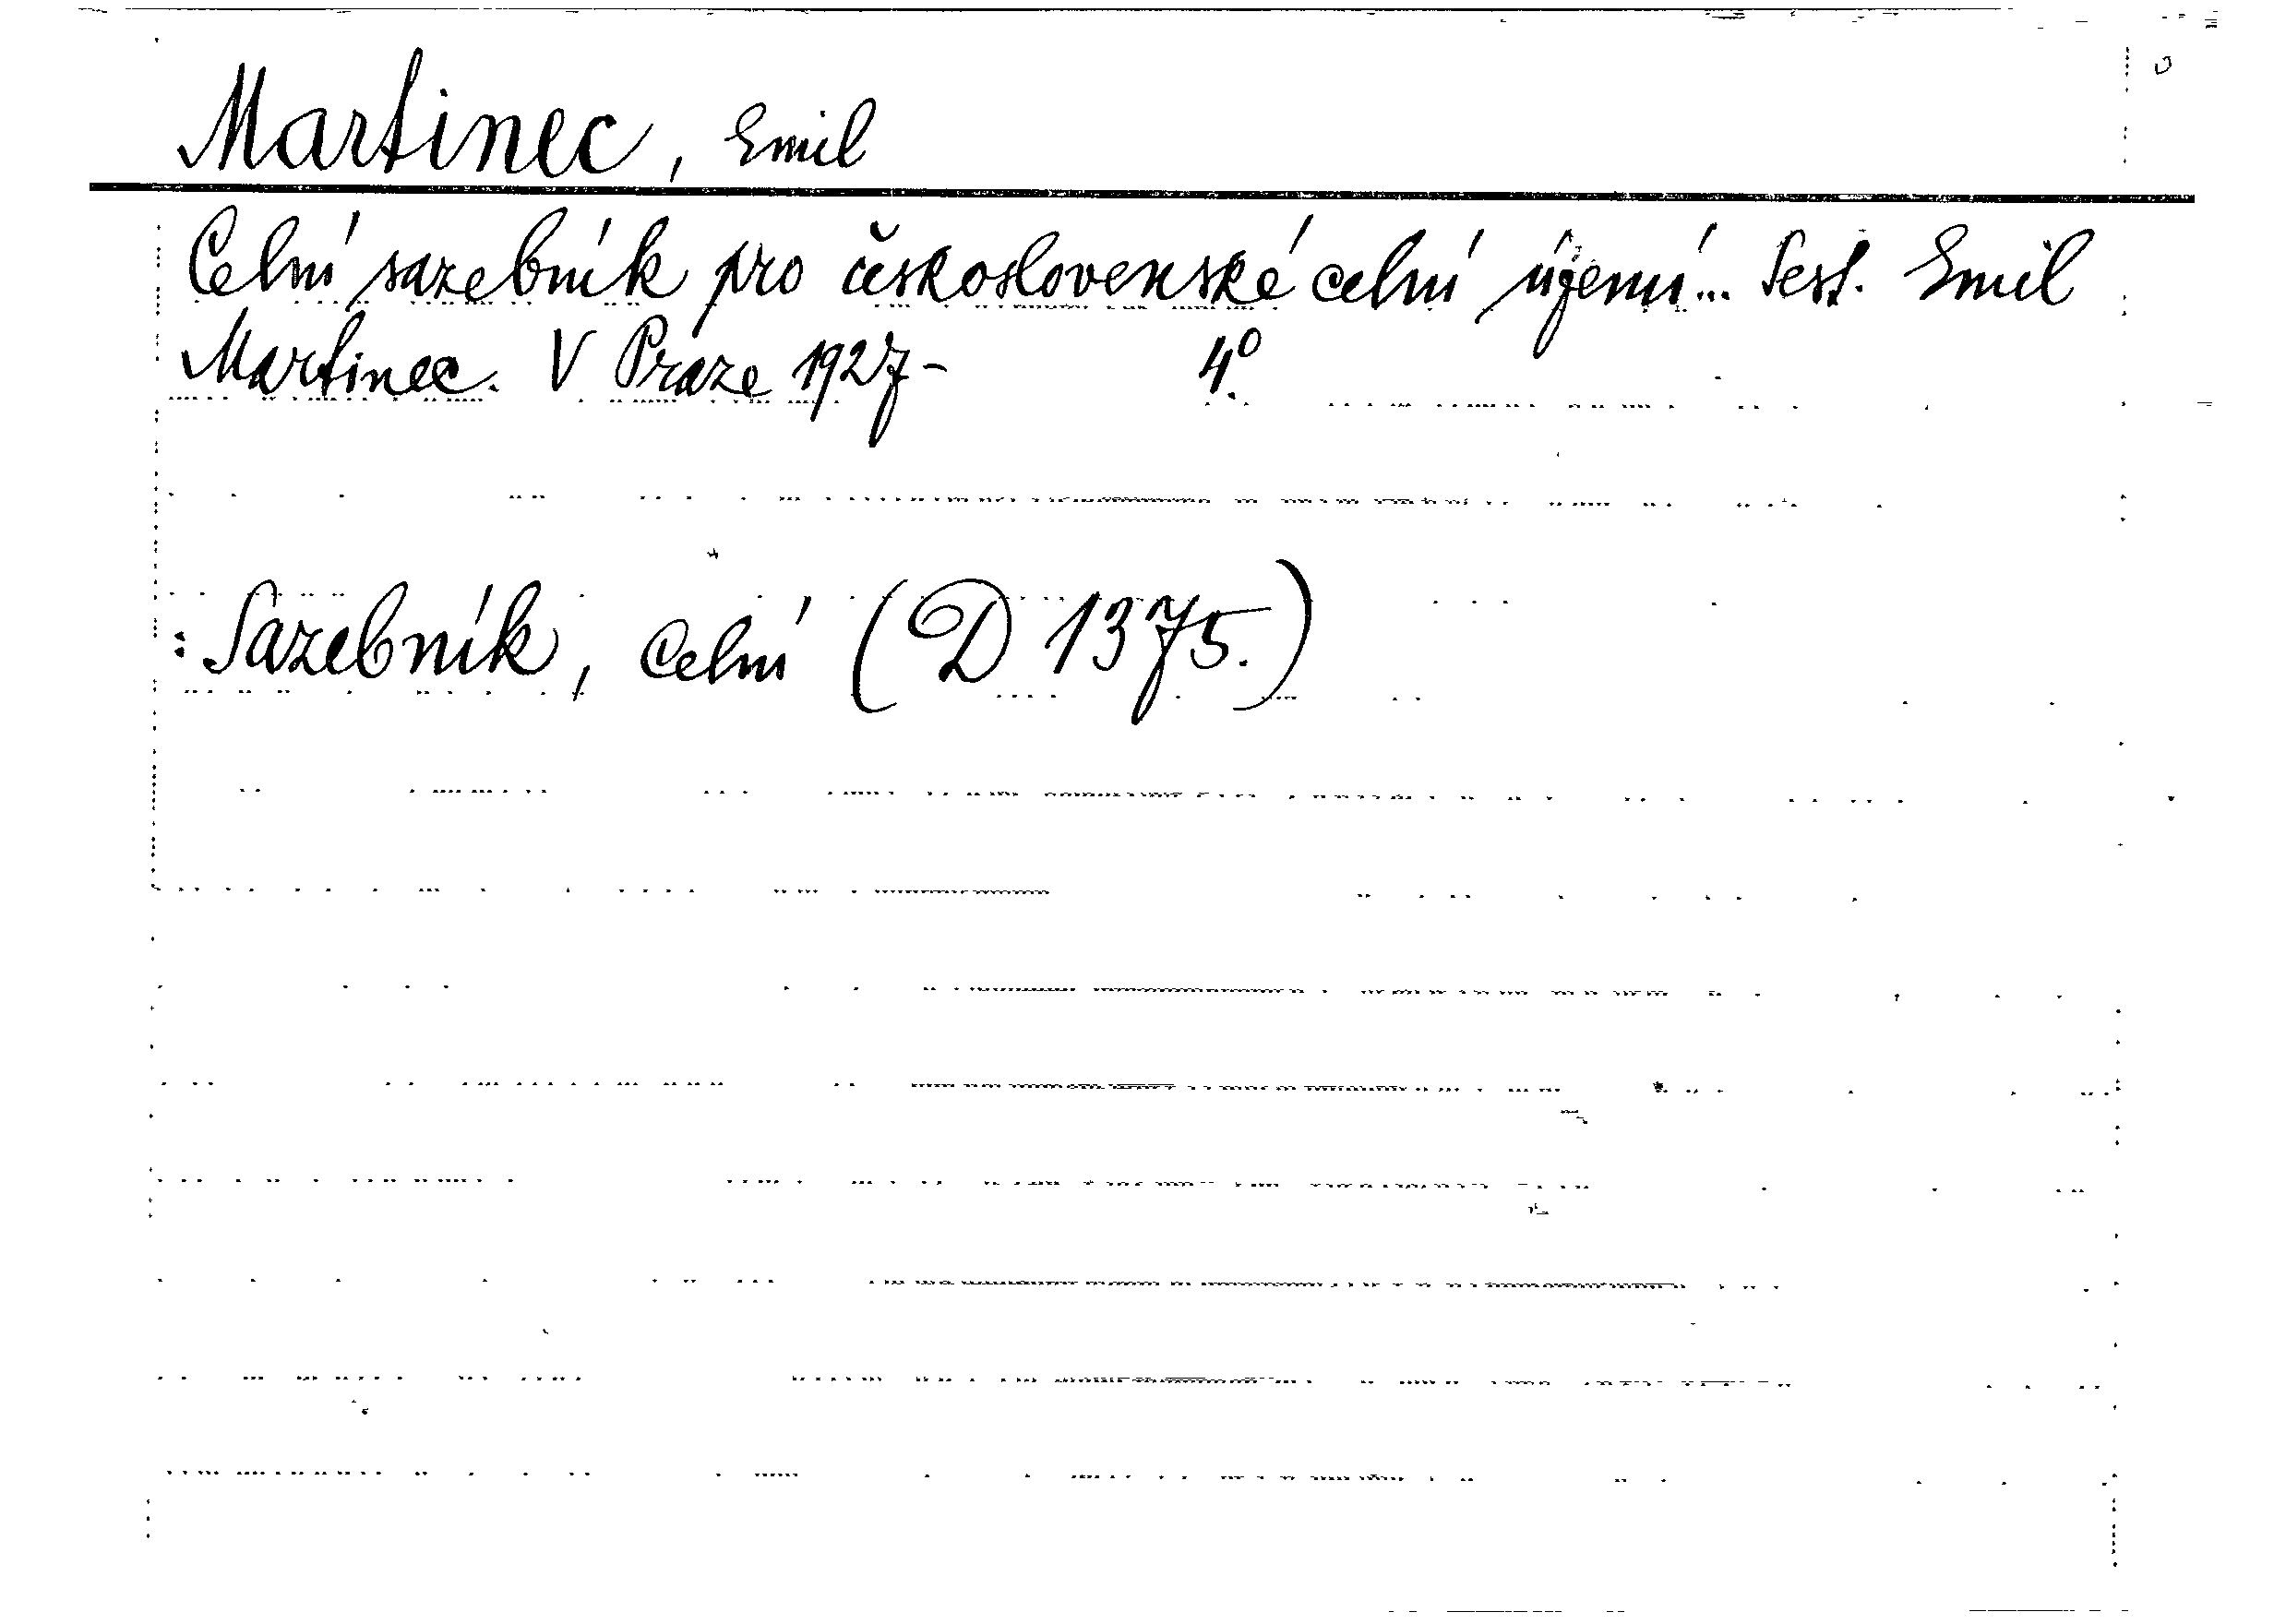 Martinec, Emil
Celní sazebník pro československé celní území... Sest. Emil
Martinec. V Praze 1927- 4°.
: Sazebník, celní (D 1375.)